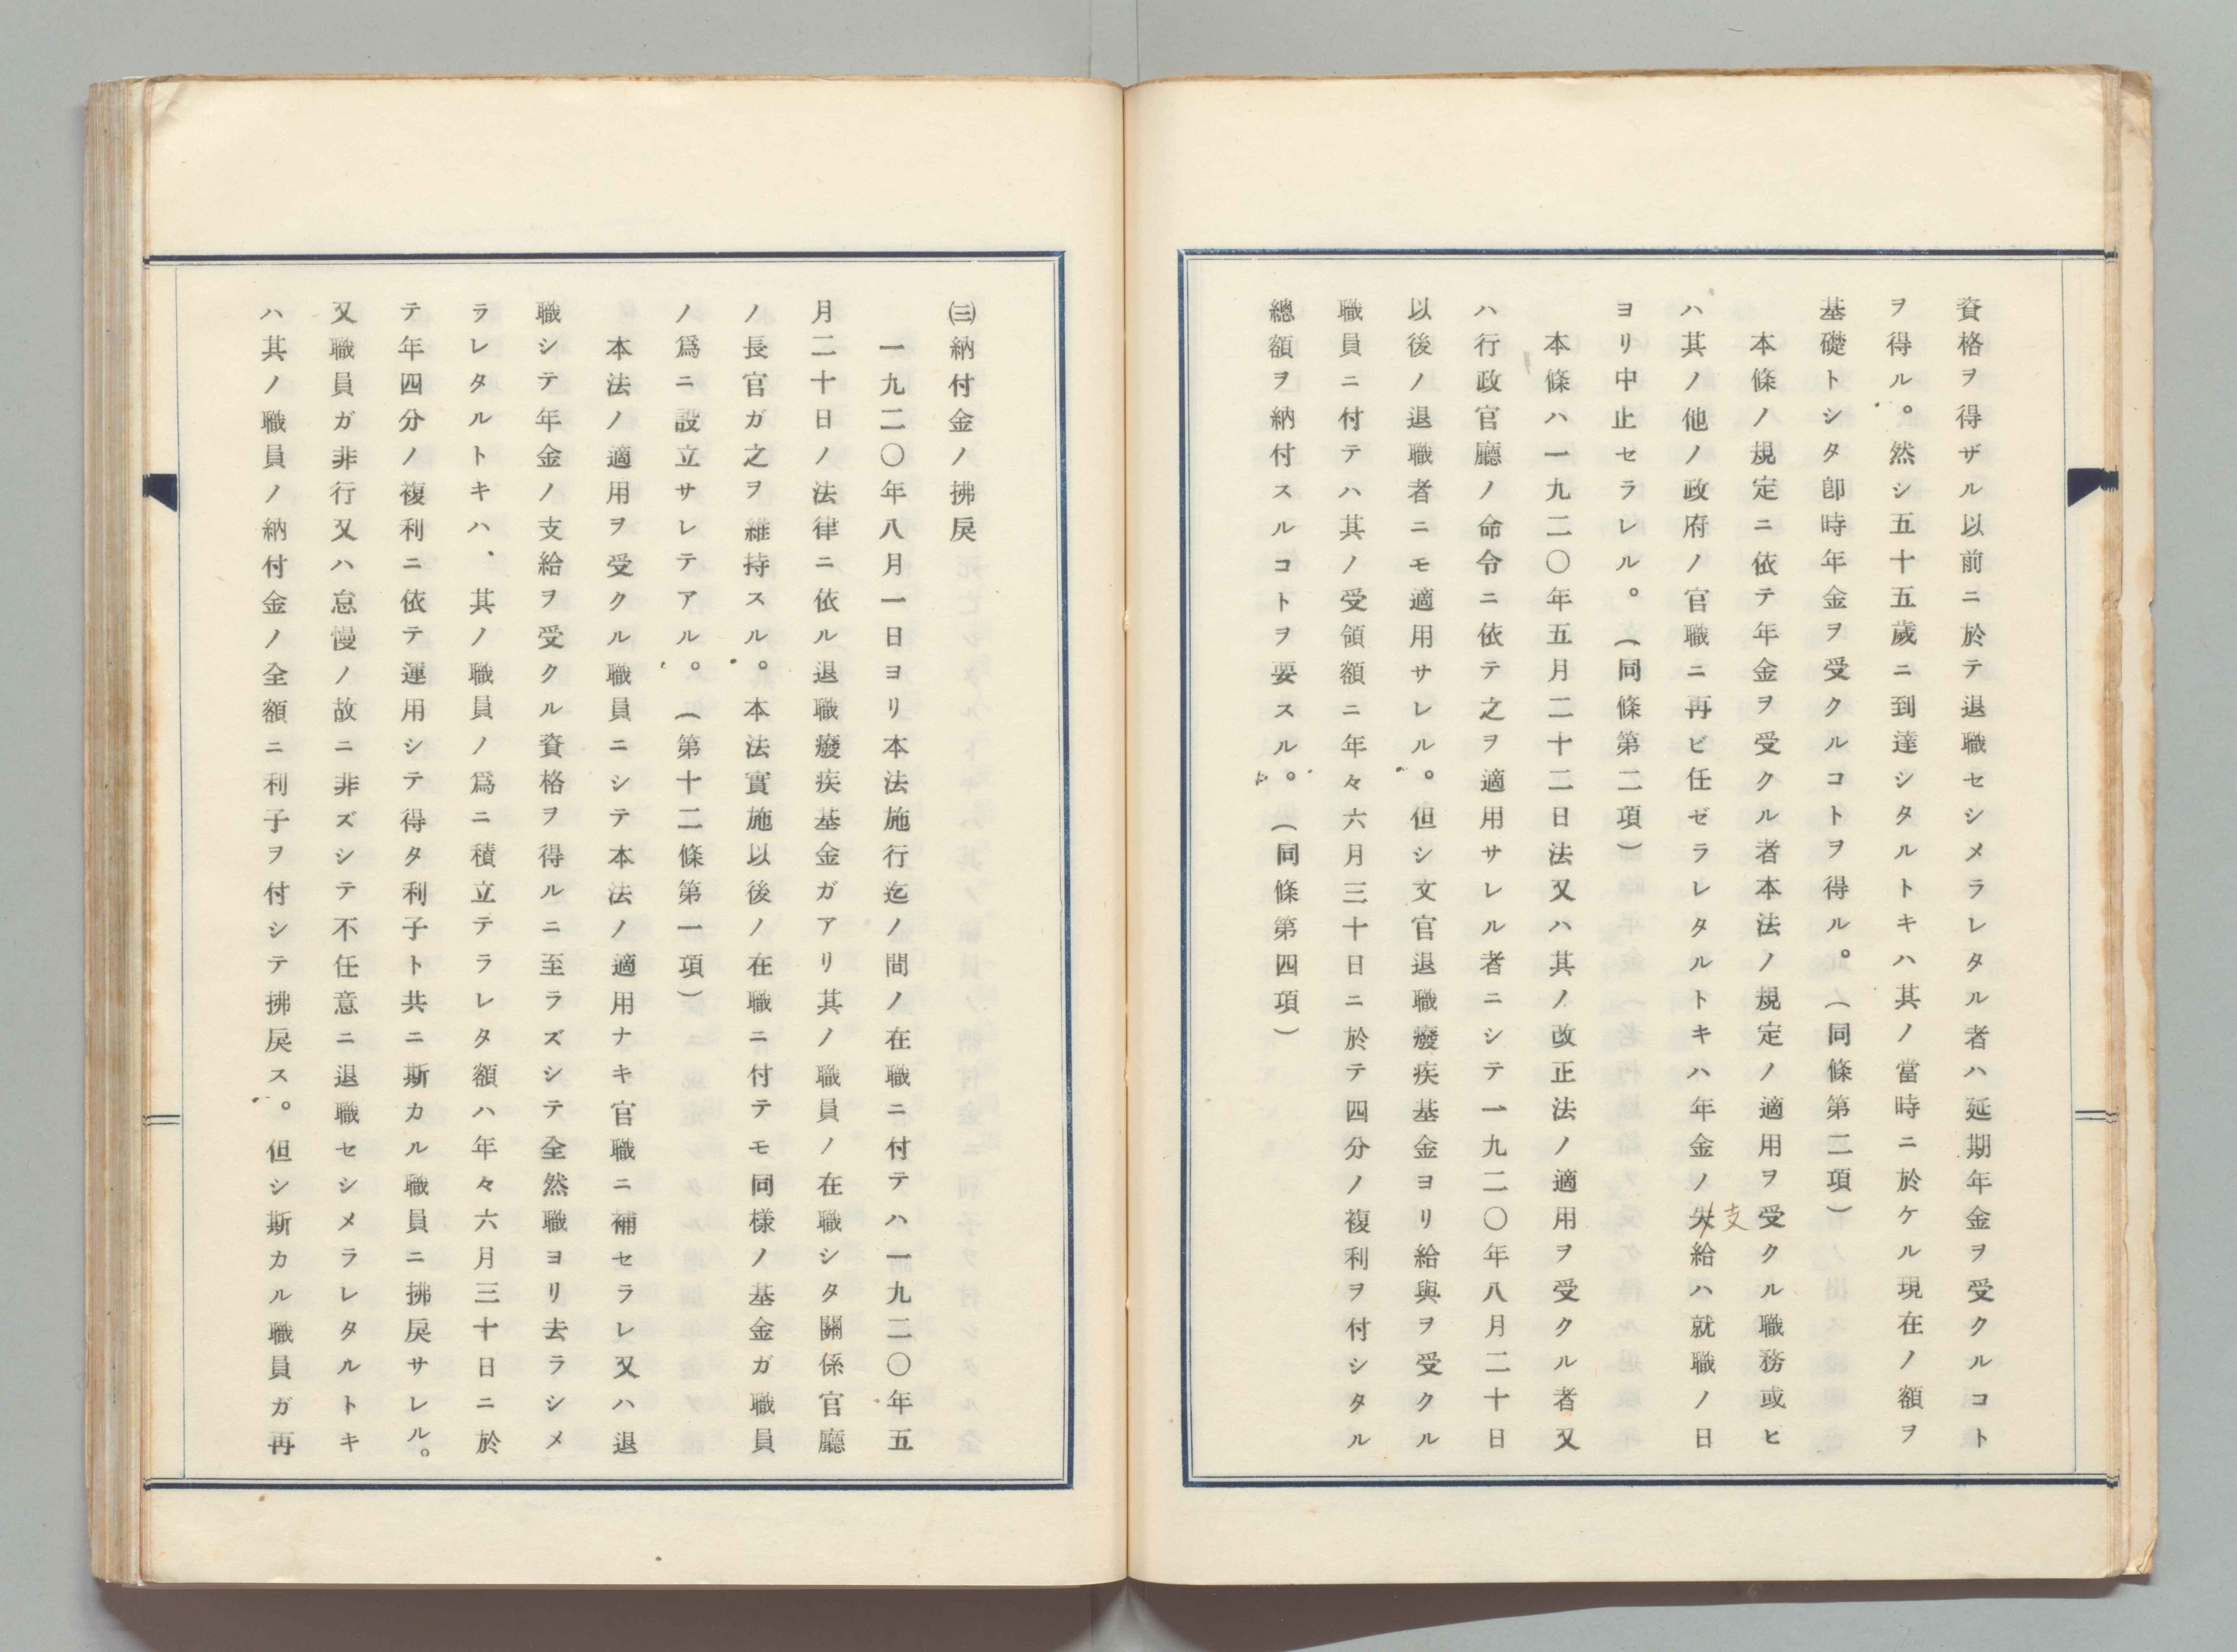 資格ヲ得ザル以前ニ於テ退職セシメラレタル者ハ延期年金ヲ受クルコト
ヲ得ル。然シ五十五歲ニ到達シタルトキハ其ノ當時ニ於ケル現在ノ額ヲ
基礎トシタ卽時年金ヲ受クルコトヲ得ル。（同條第二項）
本條ノ規定ニ依テ年金ヲ受クル者本法ノ規定ノ適用ヲ受クル職務或ヒ
ハ其ノ他ノ政府ノ官職ニ再ビ任ゼラレタルトキハ年金ノ失支給ハ就職ノ日
ヨリ中止セラレル。（同條第二項）
本條ハ一九二〇年五月二十二日法又ハ其ノ改正法ノ適用ヲ受クル者又
ハ行政官廳ノ命令ニ依テ之ヲ適用サレル者ニシテ一九二〇年八月二十日
以後ノ退職者ニモ適用サレル。但シ文官退職癈疾基金ヨリ給與ヲ受クル
職員ニ付テハ其ノ受領額ニ年々六月三十日ニ於テ四分ノ複利ヲ付シタル
總額ヲ納付スルコトヲ要スル。（同條第四項）
㈢納付金ノ拂戻
一九二〇年八月一日ヨリ本法施行迄ノ間ノ在職ニ付テハ一九二〇年五
月二十日ノ法律ニ依ル退職癈疾基金ガアリ其ノ職員ノ在職シタ關係官廳
ノ長官ガ之ヲ維持スル。本法實施以後ノ在職ニ付テモ同樣ノ基金ガ職員
ノ爲ニ設立サレテアル。（第十二條第一項）
本法ノ適用ヲ受クル職員ニシテ本法ノ適用ナキ官職ニ補セラレ又ハ退
職シテ年金ノ支給ヲ受クル資格ヲ得ルニ至ラズシテ全然職ヨリ去ラシメ
ラレタルトキハ、其ノ職員ノ爲ニ積立テラレタ額ハ年々六月三十日ニ於
テ年四分ノ複利ニ依テ運用シテ得タ利子ト共ニ斯カル職員ニ拂戻サレル。
又職員ガ非行又ハ怠慢ノ故ニ非ズシテ不任意ニ退職セシメラレタルトキ
ハ其ノ職員ノ納付金ノ全額ニ利子ヲ付シテ拂戻ス。但シ斯カル職員ガ再